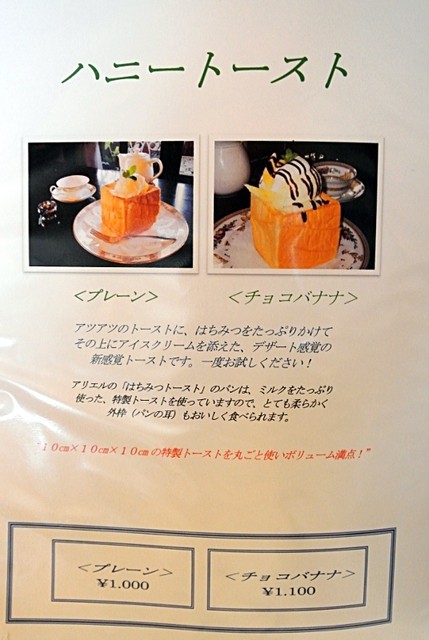 ハニートースト
<プレーン>
<チョコバナナ>
アツアツのトーストに、はちみつをたっぷりかけて
その上にアイスクリームを添えた、デザート感覚の
新感覚トーストです。一度お試しください！
アリエルの「はちみつトースト」のパンは、ミルクをたっぷり
使った、特製トーストを使っていますので、とても柔らかく
外枠（パンの耳）もおいしく食べられます。
"10㎝×10㎝×10㎝の特製トーストを丸ごと使いボリューム満点！"
<プレーン>
¥1.000
<チョコバナナ>
¥1.100